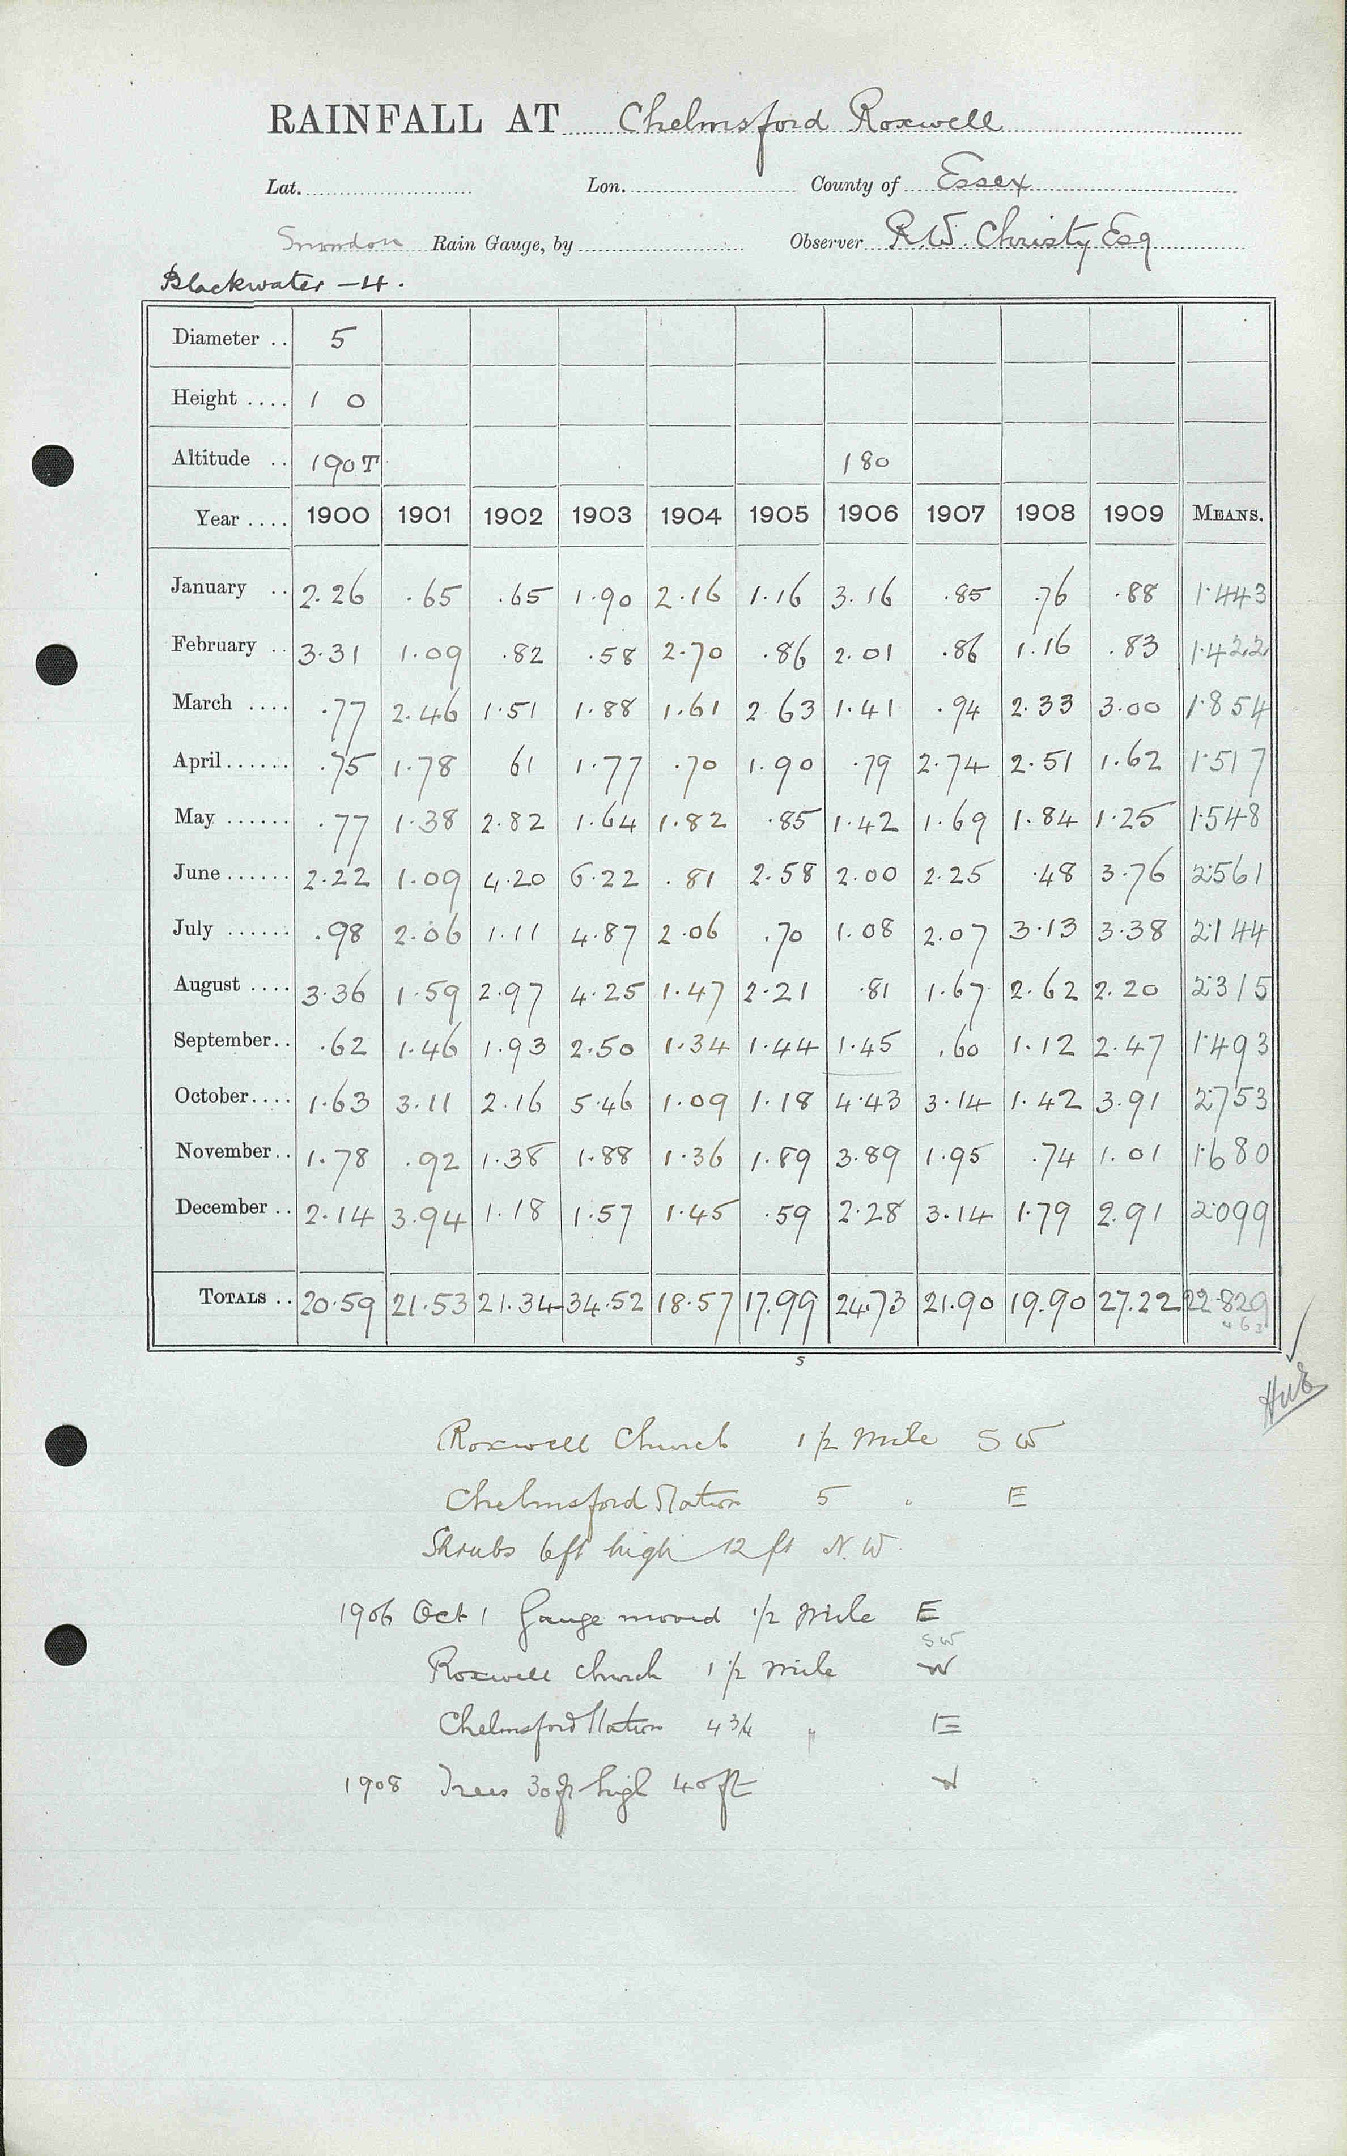 RAINFALL AT Chelmsford Roxwell
Lat. Lon. County of Essex
Snowdon Rain Gauge, by Observer R.W. Christy Esq
Blackwater – 4.
Diameter .. 5
Height .... 1 0
Altitude .. 190T 180
Year .... 1900 1901 1902 1903 1904 1905 1906 1907 1908 1909 MEANS.
January .. 2.26 .65 .65 1.90 2.16 1.16 3.16 .85 .76 .88 1.443
February .. 3.31 1.09 .82 .58 2.70 .86 2.01 .86 1.16 .83 1.422
March .... .77 2.46 1.51 1.88 1.61 2 63 1.41 .94 2.33 3.00 1.854
April...... .75 1.78 61 1.77 .70 1.90 .79 2.74 2.51 1.62 1.517
May ...... .77 1.38 2.82 1.64 1.82 .85 1.42 1.69 1.84 1.25 1.548
June...... 2.22 1.09 4.20 6.22 .81 2.58 2.00 2.25 .48 3.76 2.561
July ...... .98 2.06 1.11 4.87 2.06 .70 1.08 2.07 3.13 3.38 2.144
August .... 3.36 1.59 2.97 4.25 1.47 2.21 .81 1.67 2.62 2.20 2.315
September.. .62 1.46 1.93 2.50 1.34 1.44 1.45 .60 1.12 2.47 1.493
October.... 1.63 3.11 2.16 5.46 1.09 1.18 4.43 3.14 1.42 3.91 2.753
November.. 1.78 .92 1.38 1.88 1.36 1.89 3.89 1.95 .74 1.01 1.680
December .. 2.14 3.94 1.18 1.57 1.45 .59 2.28 3.14 1.79 2.91 2.099
TOTALS .. 20.59 21.53 21.34 34.52 18.57 17.99 24.73 21.90 19.90 27.22 22.829
5
Roxwell Church 1 1/2 Mile S W
Chelmsford Station 5 " E
Shrubs 6ft high 12 ft N.W.
1906 Oct 1 Gauge moved 1/2 Mile E
SW
Roxwell Church 1 1/2 Mile W
Chelmsford Station 4 3/4 " E
1908 Trees 30ft high 40ft W